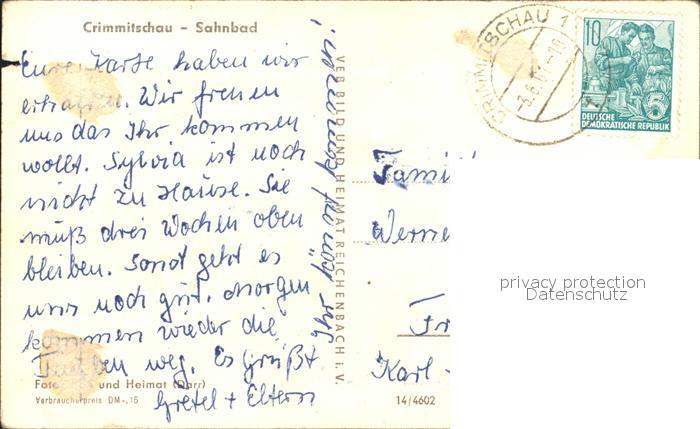 Crimmitschau - Sahnbad
Eure Karte haben wir
erhalten. Wir freuen
uns das Ihr kommen
wollt. Sylvia ist noch
nicht zu Hause. Sie
muß drei Wochen oben
bleiben. Sonst geht es
uns noch gut. Morgen
kommen wieder die
Tauben weg. Es Grüßt
Gretel + Eltern
Ihr könnt kommen!
Foto und Heimat (Darr)
Verbraucherpreis DM -,15
VEB BILD UND HEIMAT REICHENBACH i. V.
14/4602
CRIMMITSCHAU 1
10
DEUTSCHE
DEMOKRATISCHE REPUBLIK
5
Fami
Werne
Fr
Karl-
privacy protection
Datenschutz